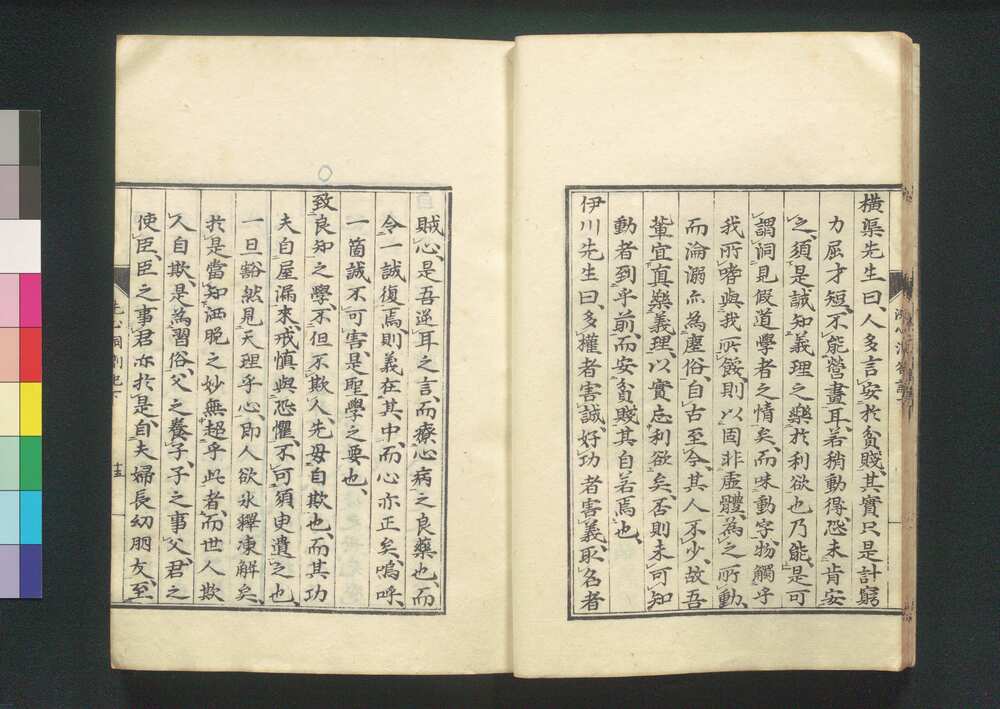 横渠先生曰、人多言安於貧賤、其實只是計窮
力屈才短、不能營畫耳、若稍動得、恐未肯安
之、須是誠知義理之樂於利欲也、乃能、是可
謂洞見假道學者之情矣、而味動字、物觸乎
我所嗜與我所餒、則以固非虛體、為之所動、
而淪溺亦為塵俗、自古至今、其人不少、故吾
輩宜真樂義理、以實忘利欲矣、否則未可知
動者到乎前、而安貧賤其自若焉也、
伊川先生曰、多權者害誠、好功者害義、取名者
賊心、是吾逆耳之言、而療心病之良藥也、而
令一誠復焉、則義在其中、而心亦正矣、嗚呼、
一箇誠不可害、是聖學之要也、
致良知之學、不但不欺人、先毋自欺也、而其功
夫自屋漏來、戒慎與恐懼、不可須臾遺之也、
一旦豁然見天理乎心、即人欲氷釋凍解矣、
於是當知洒脫之妙無超乎此者、而世人欺
人自欺、是為習俗、父之養子、子之事父、君之
使臣、臣之事君、亦於是、自夫婦長幼朋友、至
十五